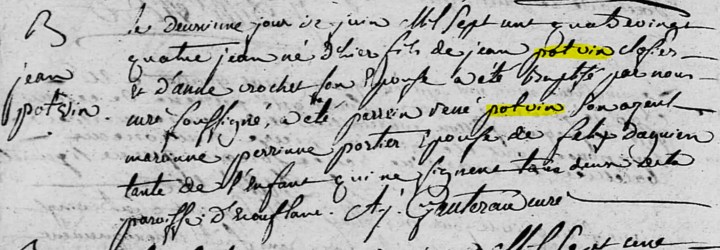 B
jean
potvin.
le deuxieme jour de juin Mil Sept cent quatre vingt
quatre jean né d'hier fils de jean potvin closier
et d'anne crochet son Epouse a été baptisé par nous
curé soussigné, a été parrein rené potvin son ayeul
maronne perrinne portier Epouse de felix daguien
tante de l'enfant qui ne signent tous deux de la
paroisse d'Enouflans. Aj. Gautereau curé
Mil Sept cent